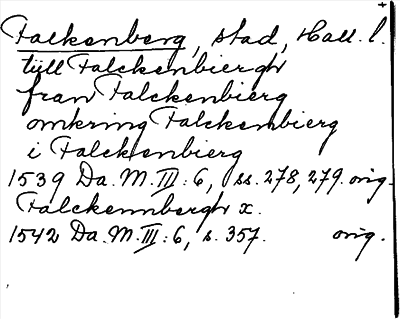 Falkenberg, stad, Hall. l.
tiill Falckenbiergh
fran Falckenbierg
omkring Falckenbierg
i Falckenbierg
1539 Da. M. III: 6, ss. 278, 279. orig.
Falckennbergh x.
1542 Da. M. III: 6, s. 357. orig.